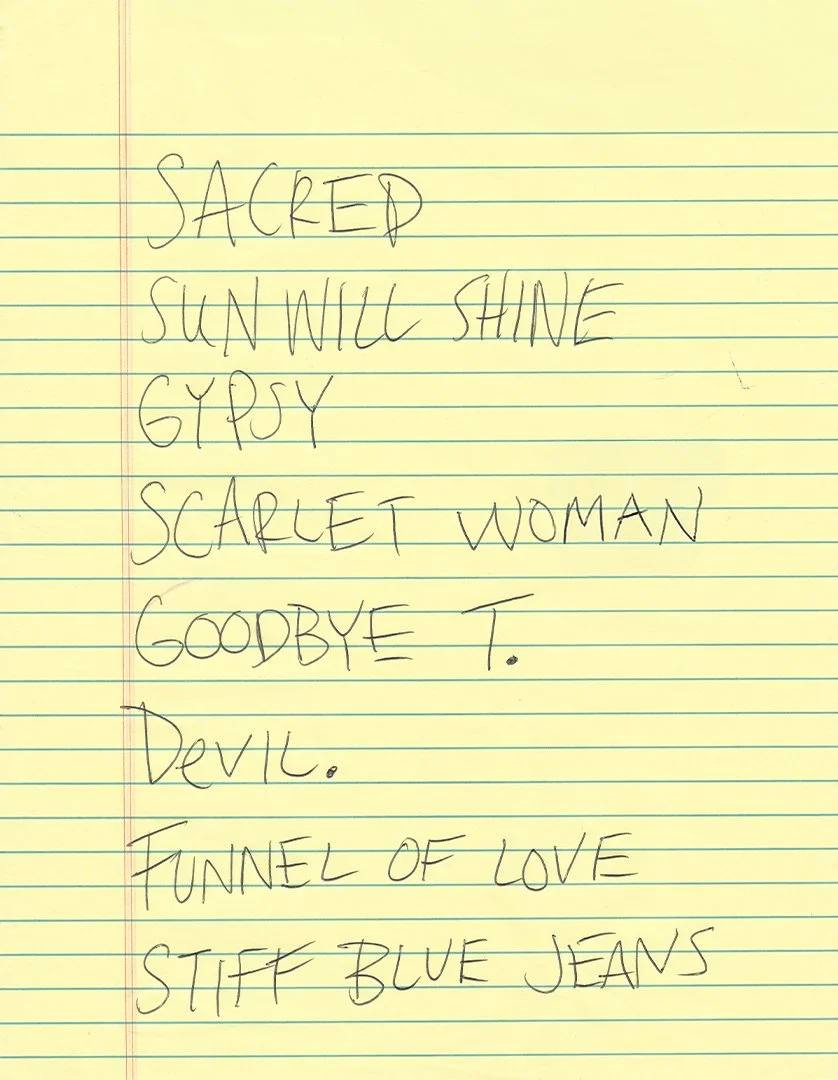 SACRED
SUN WILL SHINE
GYPSY
SCARLET WOMAN
GOODBYE T.
DeVIL.
FUNNEL OF LOVE
STIFF BLUE JEANS